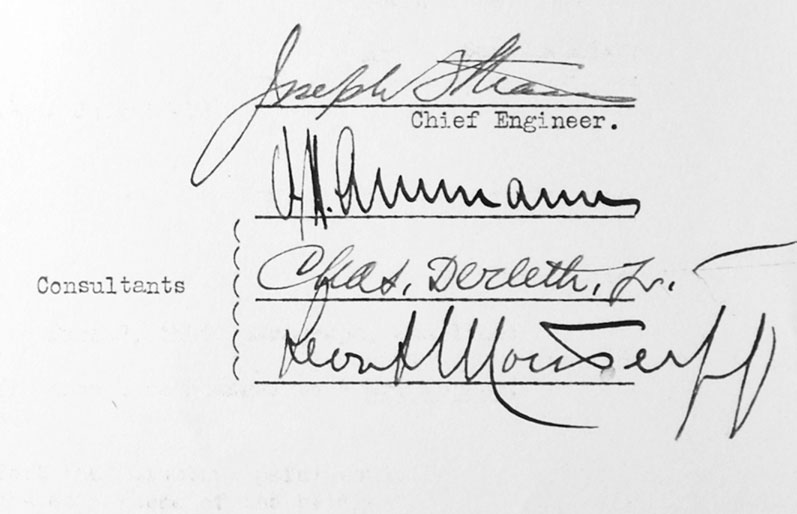 Joseph Strauss
Chief Engineer.
O.H. Ammann
Consultants
Chas. Derleth, Jr.
Leon S. Moisseiff